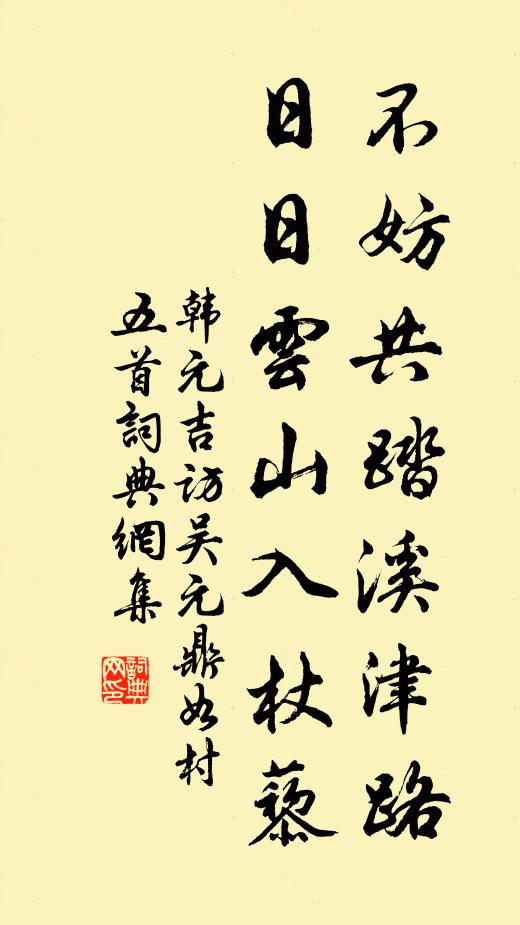 不妨共踏溪津路
日日雲山入杖藜
韩元吉访吴元鼎如村
五首詞典網集
詞典網印